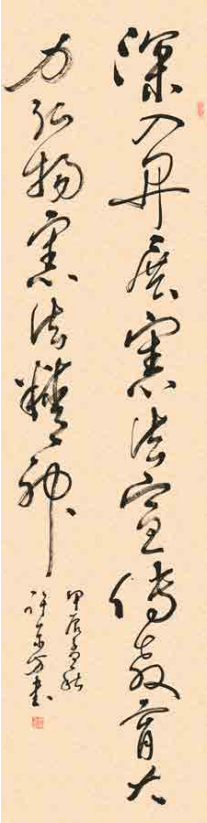 深入开展宪法宣传教育大
力弘扬宪法精神
甲辰春秋
许京方书